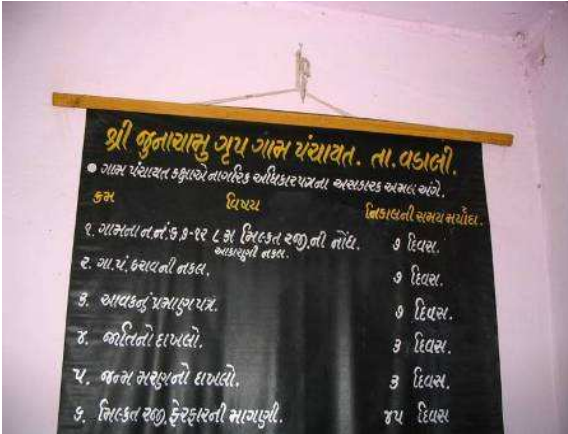 શ્રી જુનાચામુ ગૃપ ગામ પંચાયત. તા. વડાલી.
● ગામ પંચાયત કક્ષાએ નાગરિક અધિકારપત્રના અસરકારક અમલ અંગે.
ક્રમ વિષય નિકાલની સમય મર્યાદા.
૧. ગામના ન.નં. ૬,૭-૧૨ ૮ અ મિલ્કત રજી.ની નોંધ. ૭ દિવસ.
આકારણી નકલ.
૨. ગા.પં. ઠરાવની નકલ. ૭ દિવસ.
૩. આવકનું પ્રમાણપત્ર. ૭ દિવસ.
૪. જાતિનો દાખલો. ૩ દિવસ.
૫. જન્મ મરણનો દાખલો. ૩ દિવસ.
૬. મિલ્કત રજી. ફેરફારની માગણી. ૪૫ દિવસ